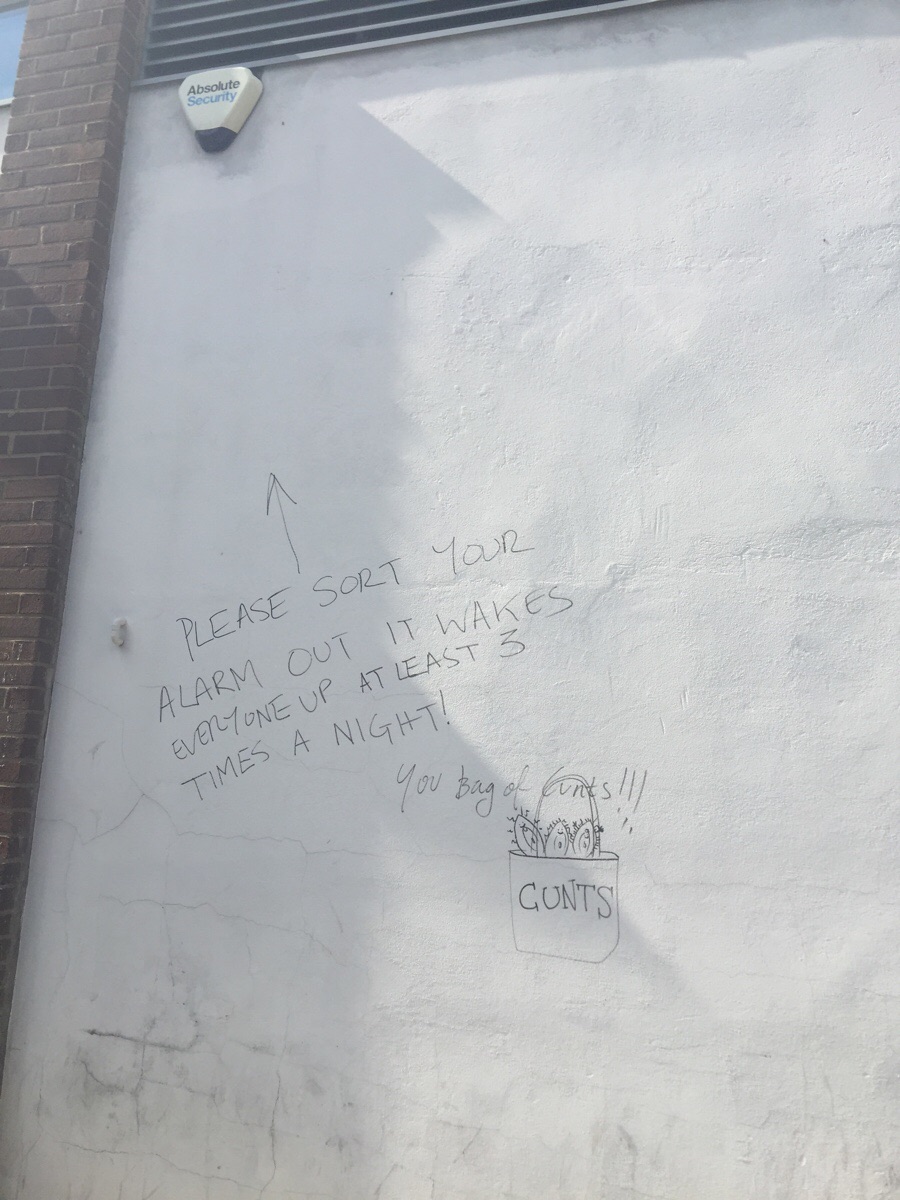 Absolute
Security
PLEASE SORT YOUR
ALARM OUT IT WAKES
EVERYONE UP AT LEAST 3
TIMES A NIGHT!
You Bag of Cunts!!!
CUNTS